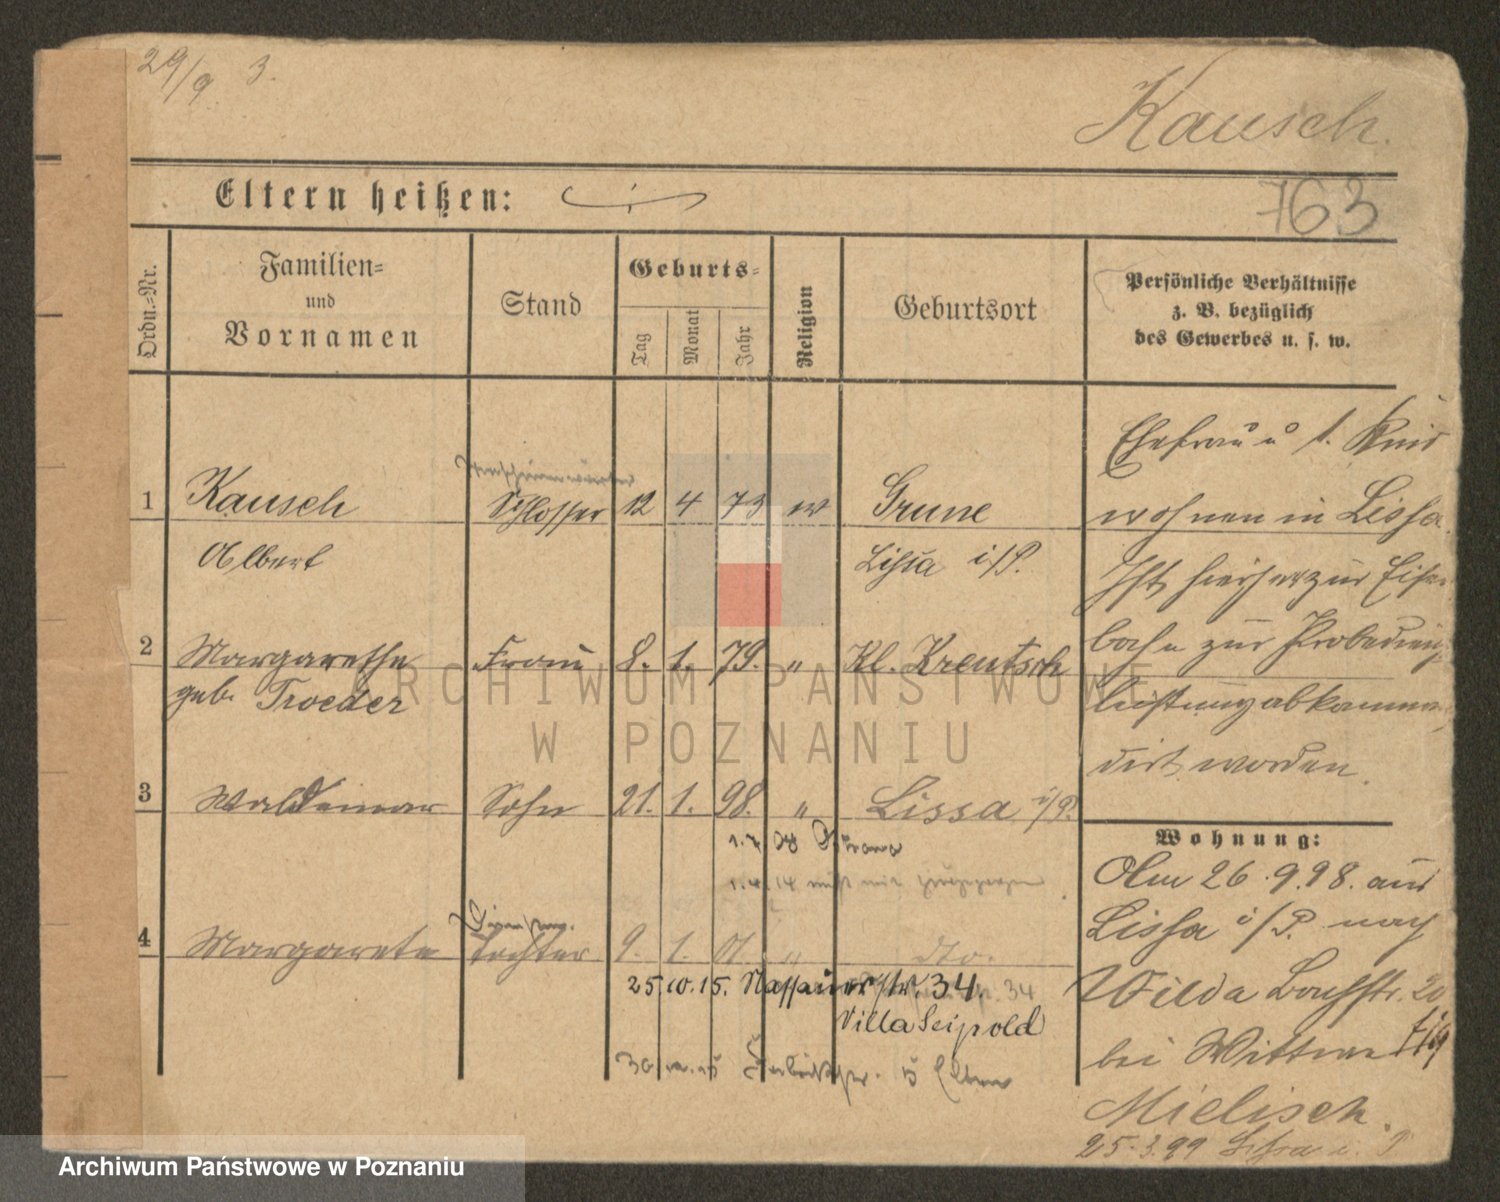 29/9 3.
Kausch.
Eltern heißen:
763
Ordn.-Nr.
Familien=
und
Vornamen
Stand
Geburts=
Tag
Monat
Jahr
Religion
Geburtsort
Persönliche Verhältnisse
z. B. bezüglich
des Gewerbes u. s. w.
1 Kausch Schlosser 12 4 73 ev Grune
Albert Lissa i/P.
2 Margarethe Frau 8. 1. 79. " Kl. Kreutsch
geb. Troeder
3 Waldemar Sohn 21. 1. 98. " Lissa i/P.
1.4.14
4 Margarete Tochter 9. 1. 01. " dto.
25.10.15. Nassauerstr. 34.
Villa Seipold
Eltern
Ehefrau u 1. Kind
wohnen in Lissa.
Ist hierher zur Eisen-
bahn zur Probedienst-
leistung abkomman-
dirt worden.
Wohnung:
Am 26.9.98. aus
Lissa i/P. nach
Wilda Bachstr. 20
bei Wittwe
Mielisch.
25.3.99 Lissa i. P
ARCHIWUM PAŃSTWOWE
W POZNANIU
Archiwum Państwowe w Poznaniu